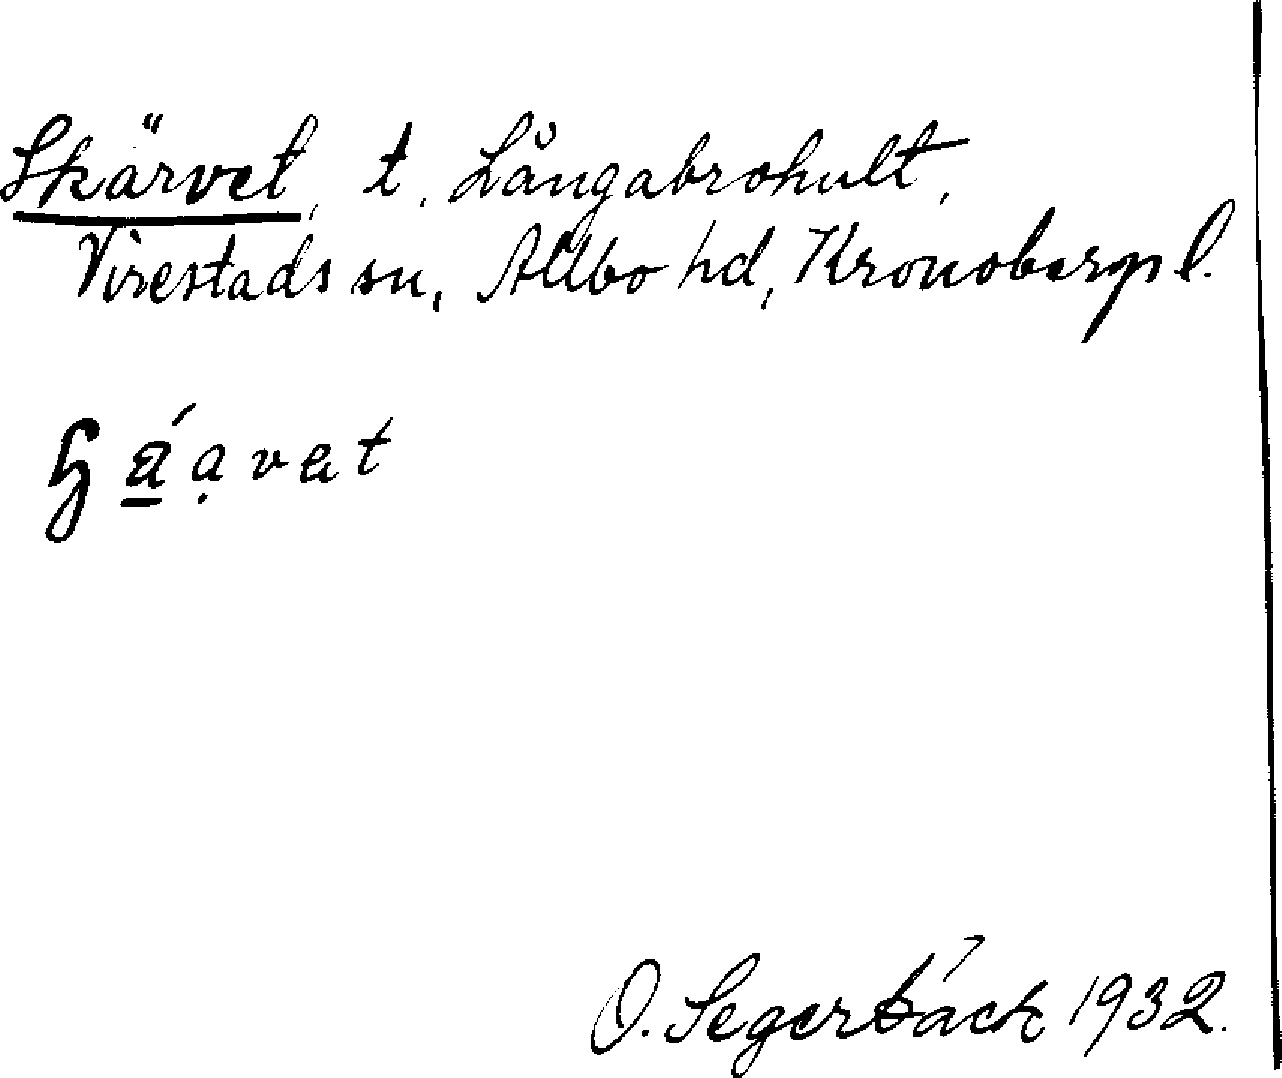 Skärvet, t. Långabrohult,
Virestads sn, Allbo hd, Kronobergs l.
O. Segerbäck 1932.